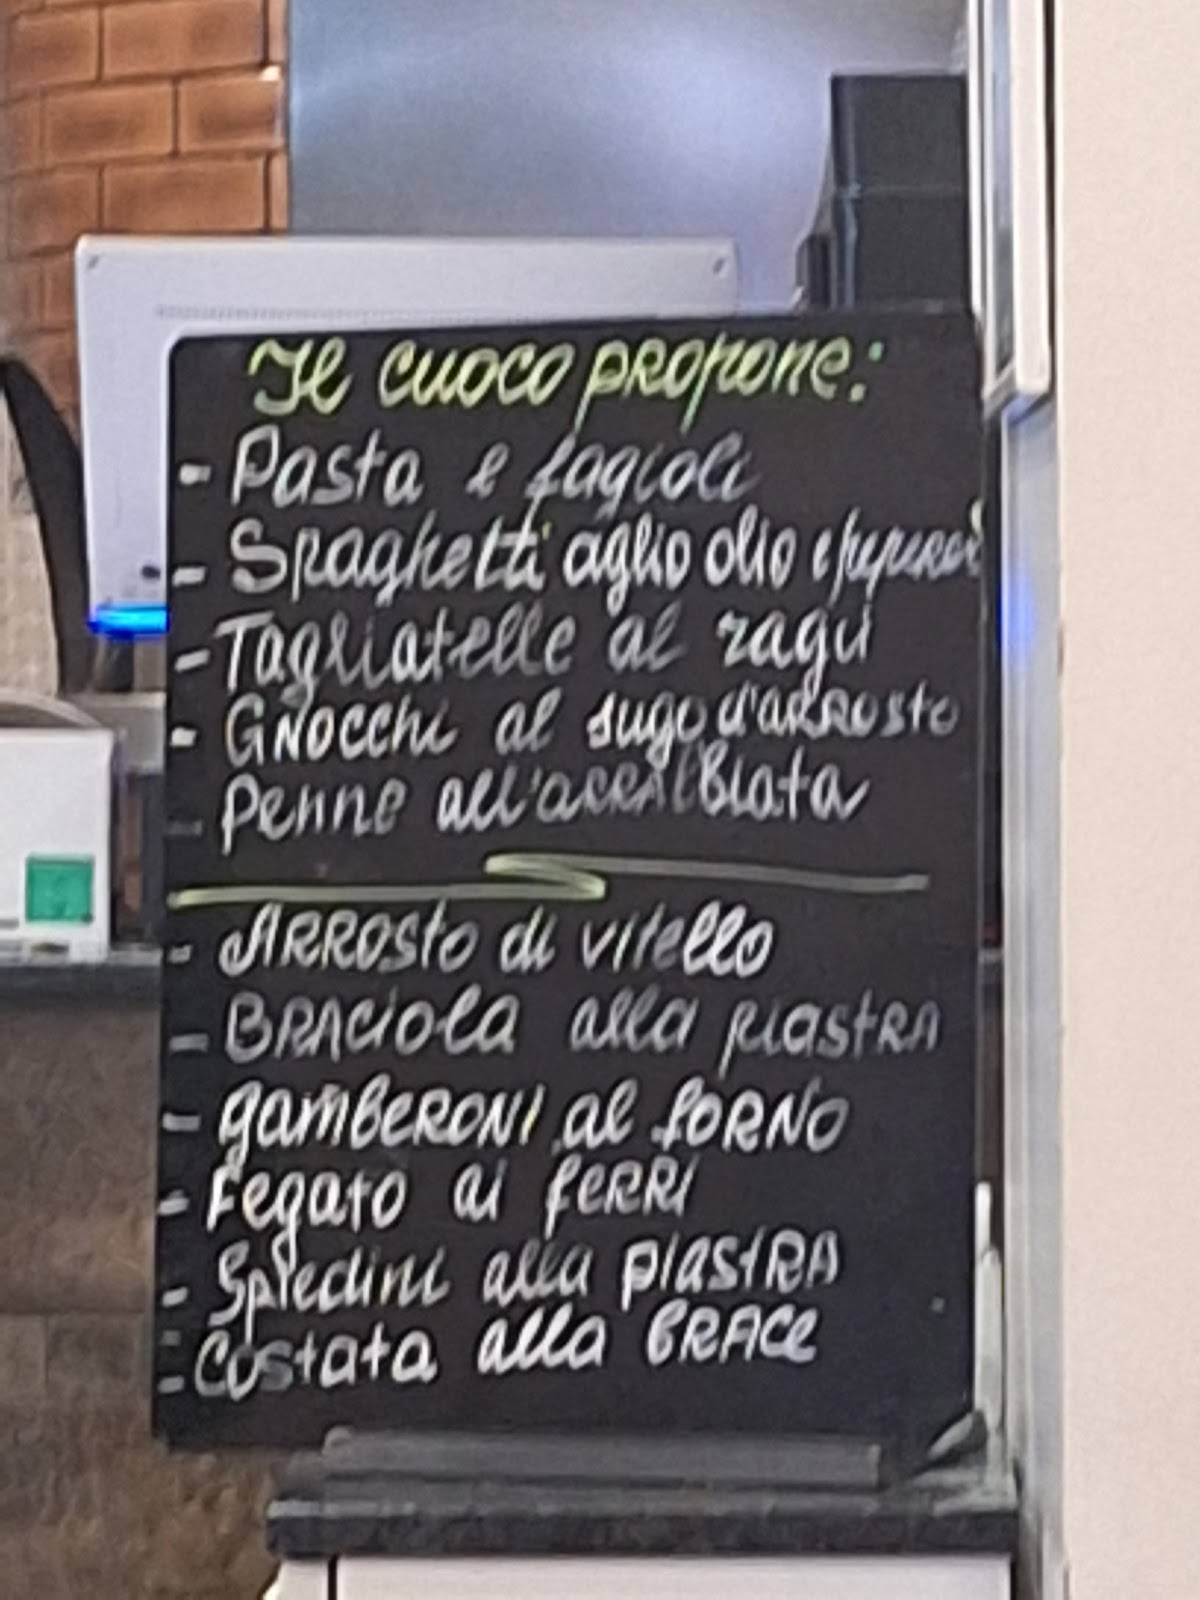 Il cuoco propone:
- Pasta e fagioli
- Spaghetti aglio olio e
- Tagliatelle al ragù
- Gnocchi al sugo d'arrosto
- Penne all'arrabbiata
- Arrosto di vitello
- Braciola alla piastra
- Gamberoni al forno
- Fegato ai ferri
- Spiedini alla piastra
- Costata alla brace